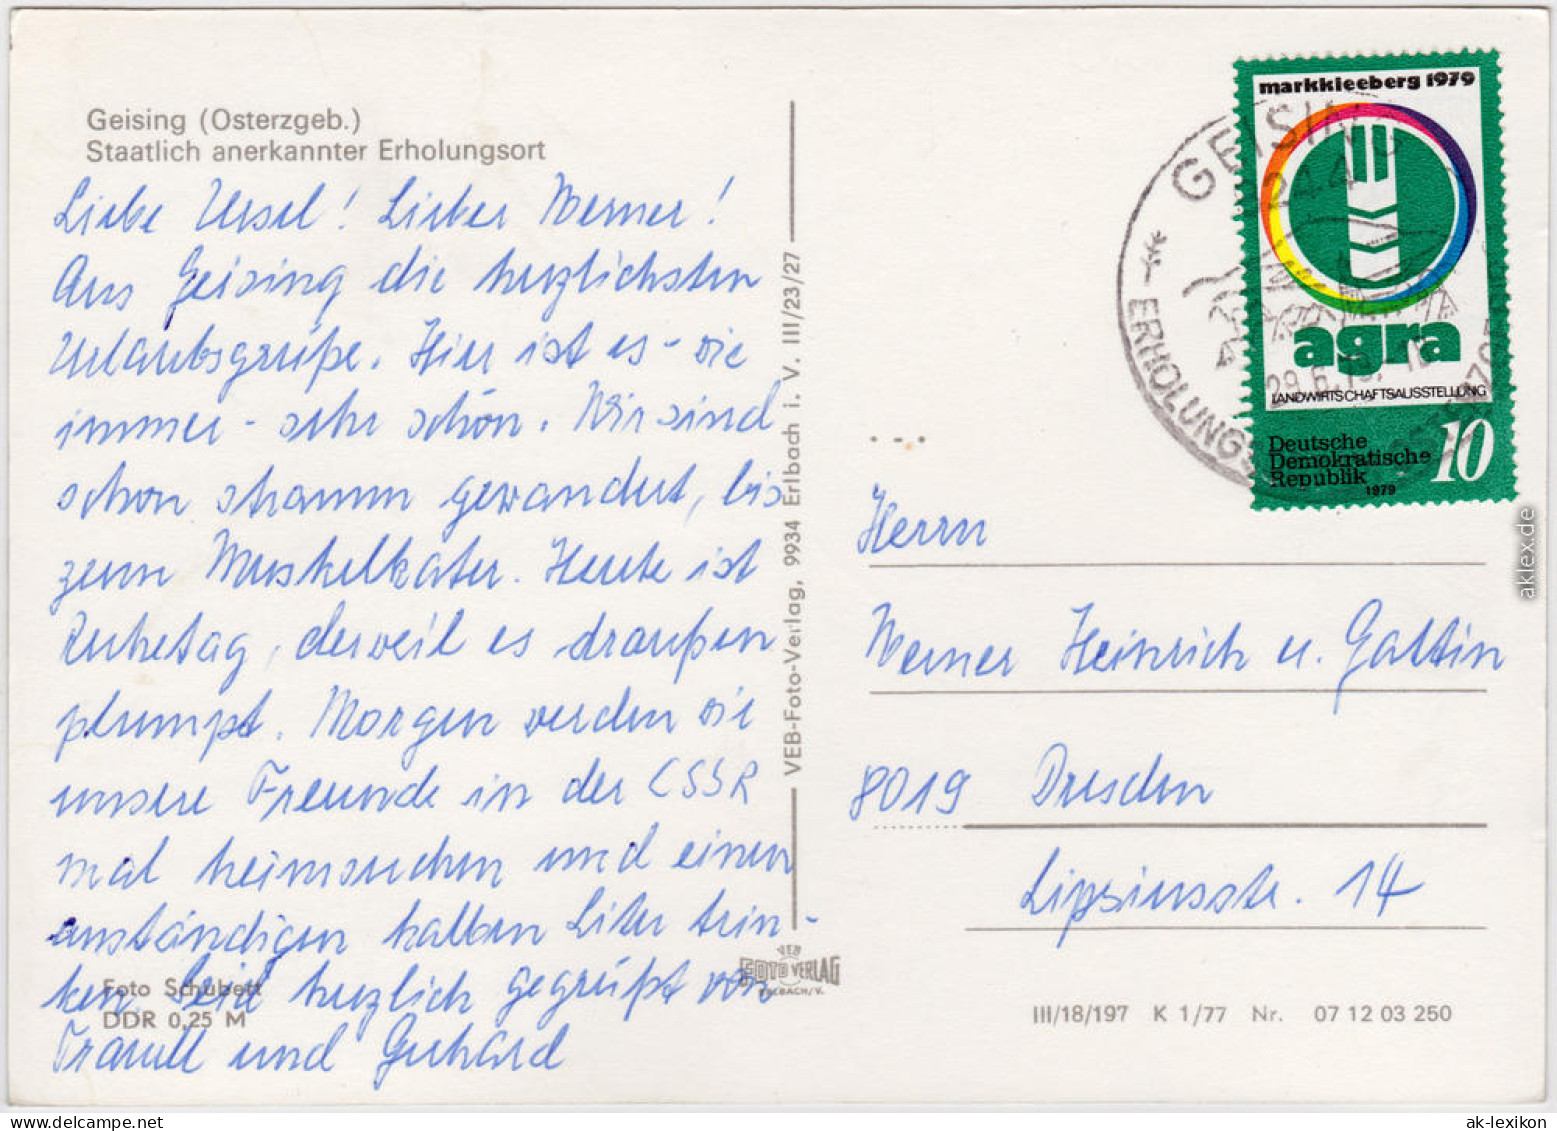 Geising (Osterzgeb.)
Staatlich anerkannter Erholungsort
Liebe Ursel! Lieber Werner!
Aus Geising die herzlichsten
Urlaubsgrüße. Hier ist es - wie
immer - sehr schön. Wir sind
schon stramm gewandert, bis
zum Muskelkater. Heute ist
Ruhetag, derweil es draußen
plumpt. Morgen werden wir
unsere Freunde in der CSSR
mal heimsuchen und einen
anständigen halben Liter trin-
ken. Seid herzlich gegrüßt von
Traudl und Gerhard
Foto Schubert
DDR 0,25 M
VEB-Foto-Verlag, 9934 Erlbach i. V. III/23/27
VEB
FOTO VERLAG
ERLBACH/V.
markkleeberg 1979
agra
LANDWIRTSCHAFTSAUSSTELLUNG
Deutsche
Demokratische
Republik
10
1979
GEISING
8244
29.6.79
ERHOLUNGS
Herrn
Werner Heinrich u. Gattin
8019 Dresden
Lipsiusstr. 14
III/18/197 K 1/77 Nr. 07 12 03 250
aklex.de
ak-lexikon